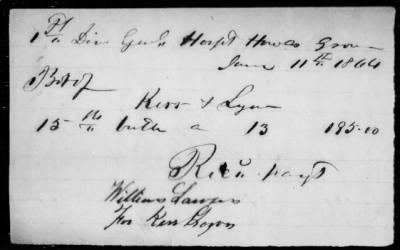 1st Div Genl Hospt Howds Grove
June 11th 1864
Bot of
Kerr &
15 lb butter a 13 195.00
Rec'd payt
Williams
For Kerr